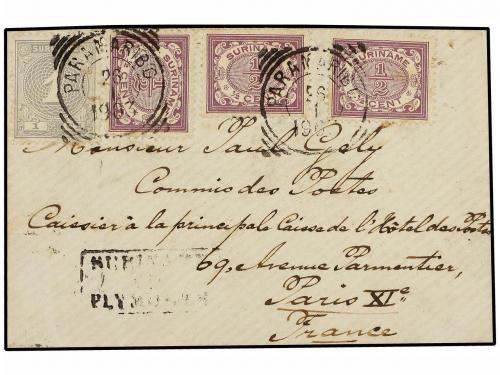 SURINAME
1
SURINAME
1/2
CENT
SURINAME
1/2
CENT
SURINAME
1/2
CENT
PARAMARIBO
PARAMARIBO
Monsieur Paul Gely
Commis des Postes
Caissier à la principale Caisse de l'Hôtel des Postes
69, Avenue Parmentier,
Paris XIe
France
SURINAME
PLYMOUTH